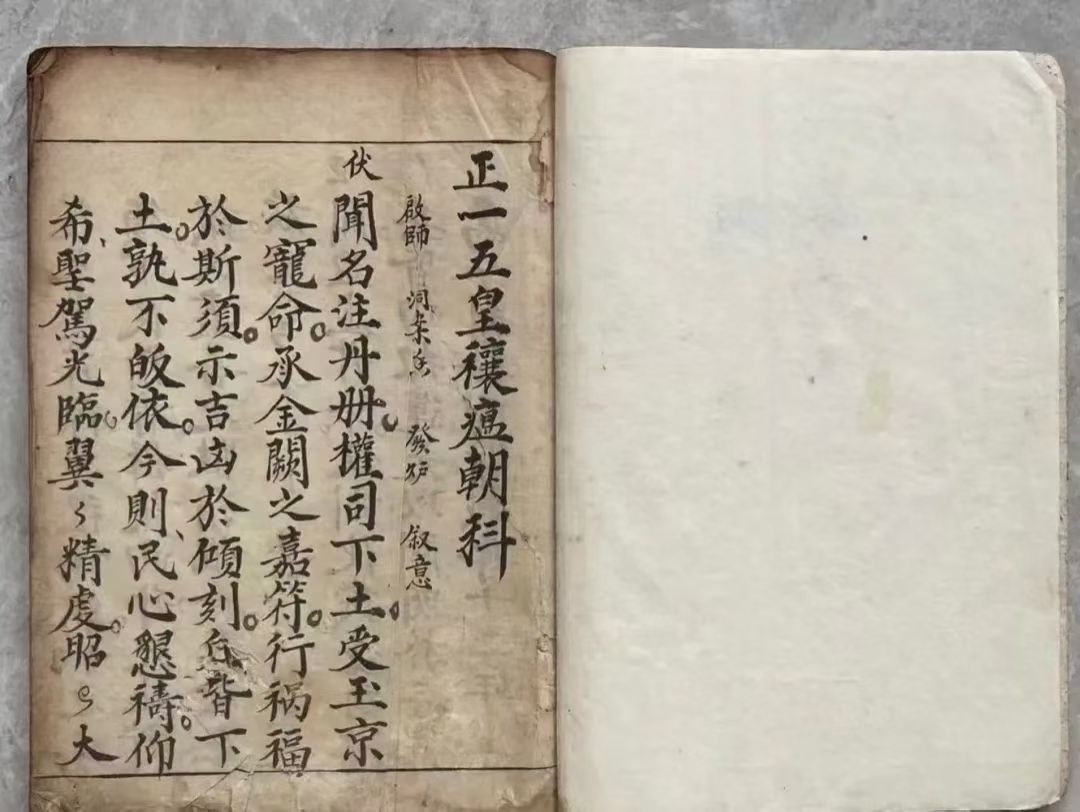 正一五皇禳瘟朝科
啟師 洞案 發炉 叙意
伏
聞名注丹册。權司下土。受玉京
之寵命。承金闕之嘉符。行禍福
於斯須。示吉凶於傾刻。皆下
土。孰不皈依。今則、民心懇禱。仰
希、聖駕光臨。翼〻精虔。昭〻大